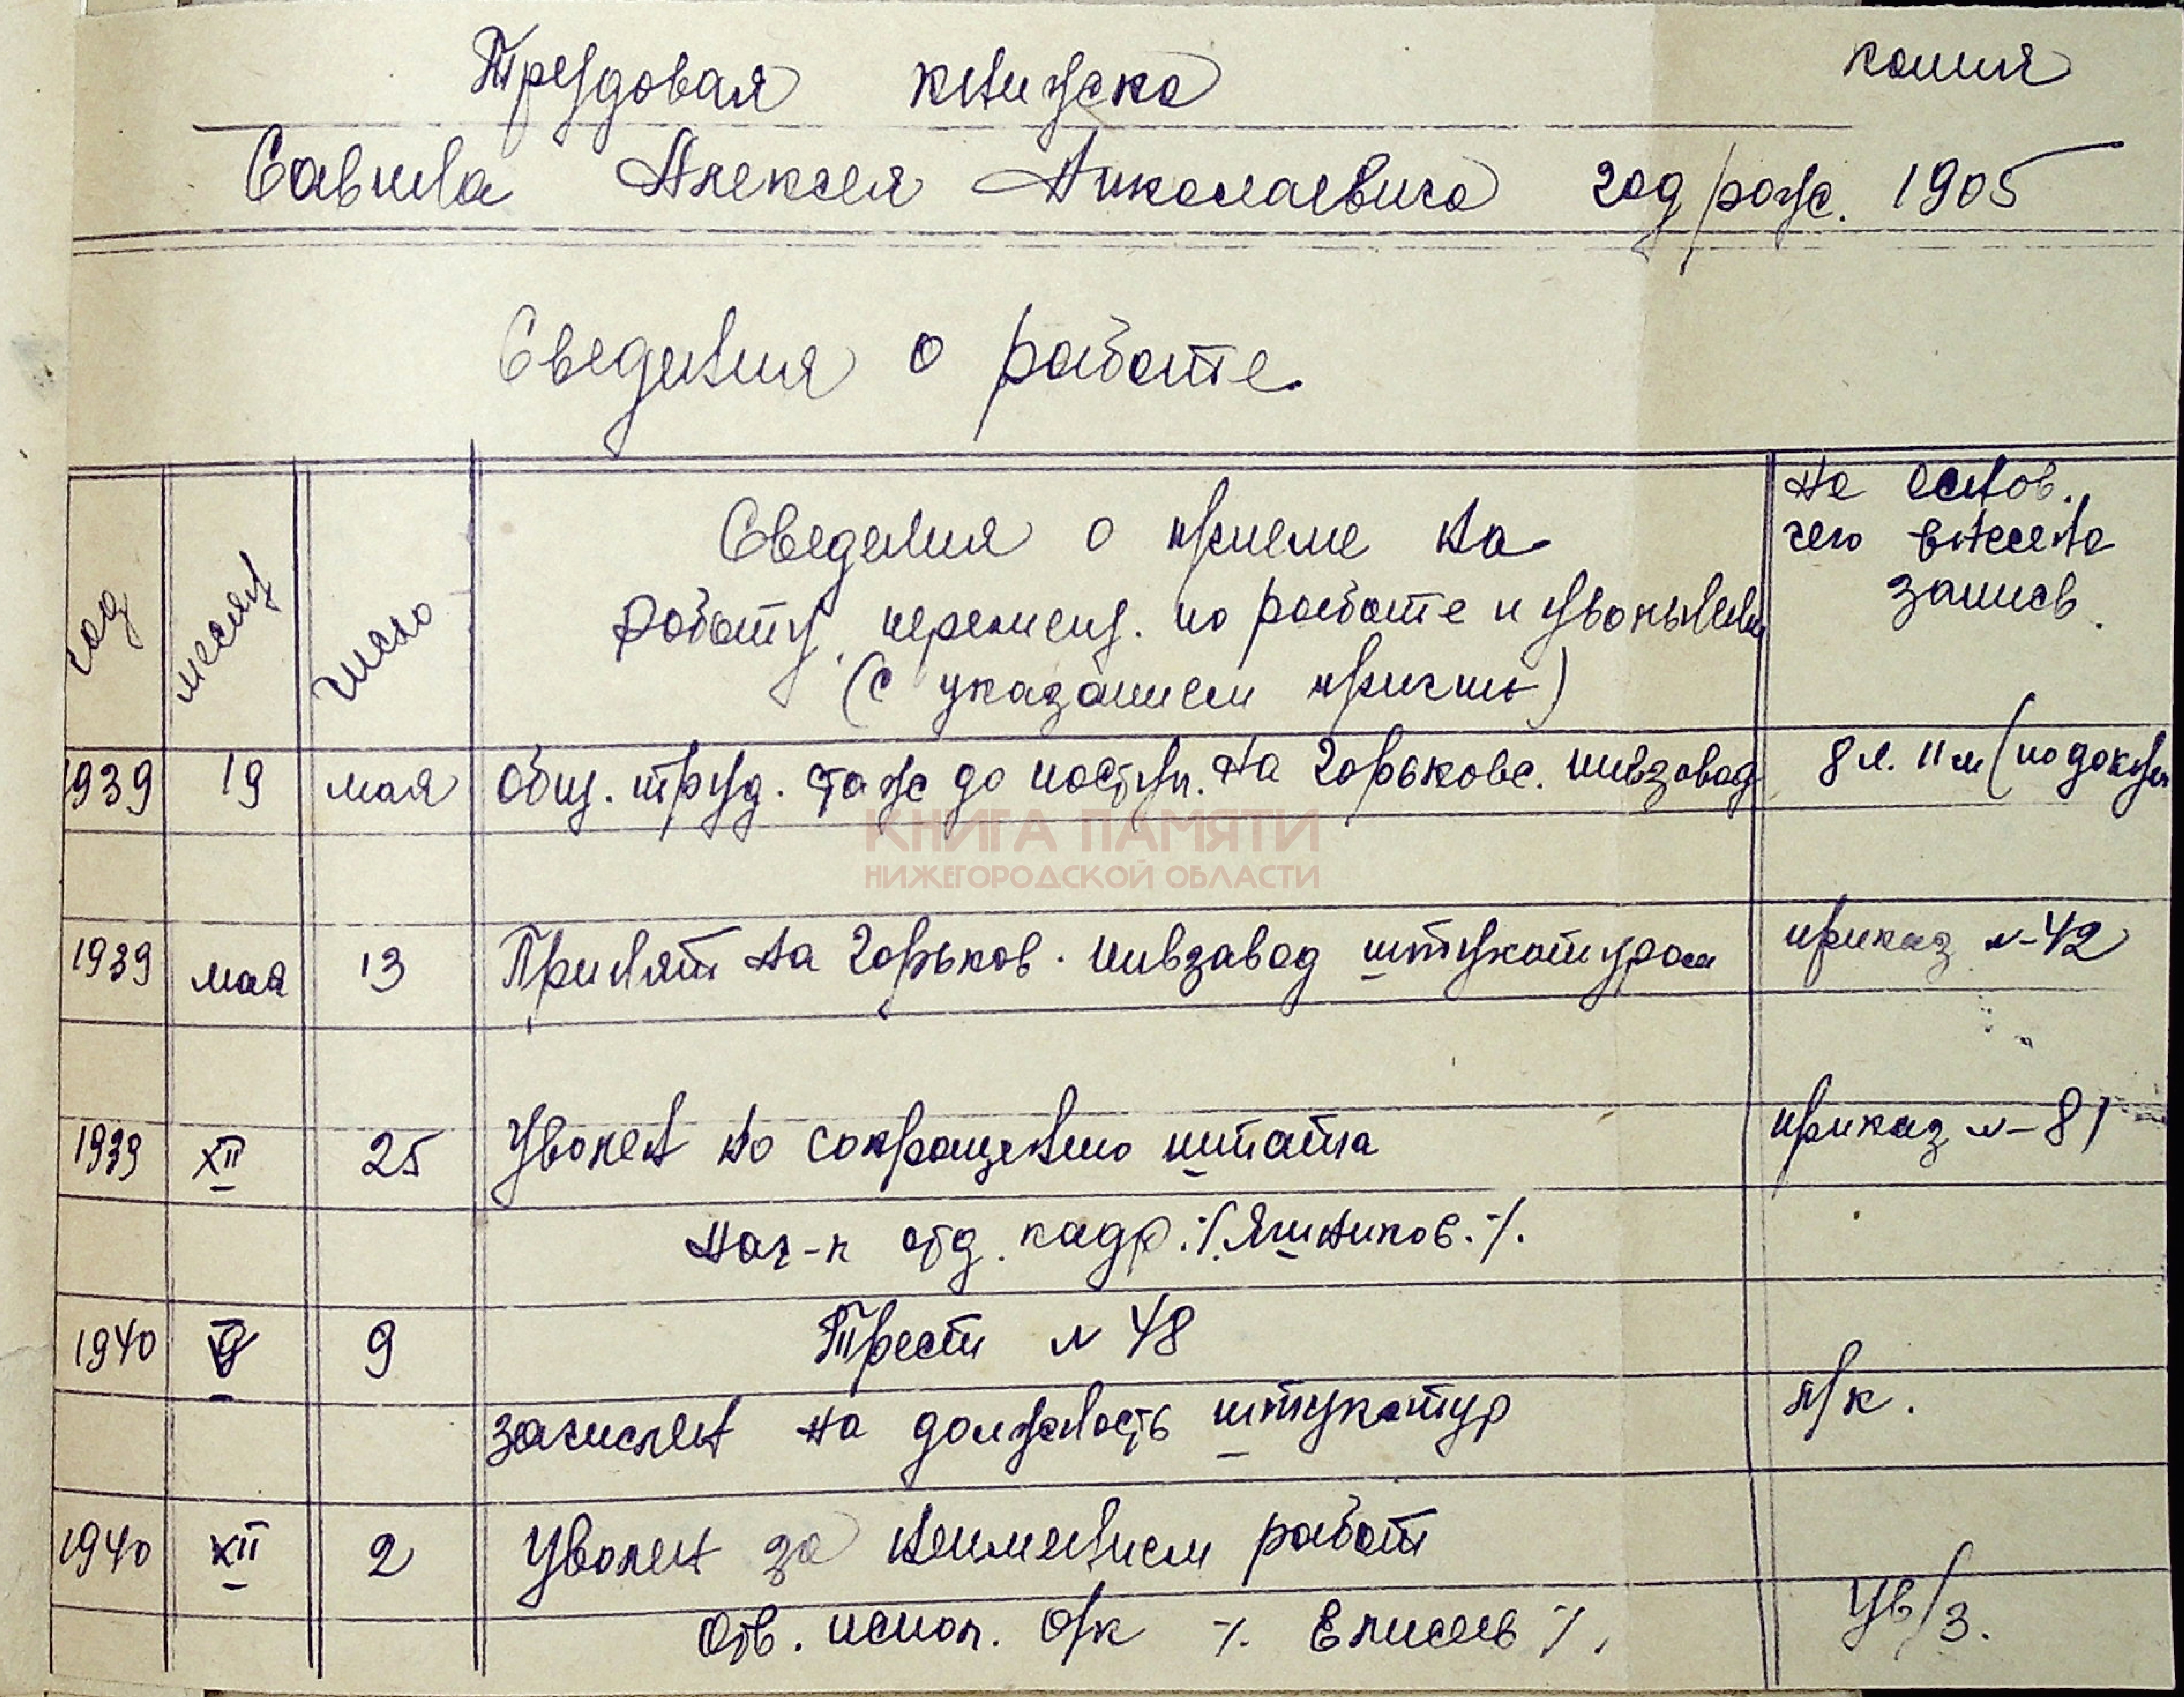 копия
Трудовая книжка
Савина Алексея Николаевича год/рожс. 1905
Сведения о работе
год
месяц
число
Сведения о приеме на
работу, перемещ. по работе и увольнении
(с указанием причин)
На основ.
чего внесена
запись.
1939 19 мая Общ. труд. стаж до поступ. на Горьковс. пивзавод 8 л. 11 м (по докум
КНИГА ПАМЯТИ
НИЖЕГОРОДСКОЙ ОБЛАСТИ
1939 мая 13 Принят на Горьков. пивзавод штукатуром приказ №-42
1939 XII 25 Уволен по сокращению штата приказ №-81
Нач-к отд. кадр. /.Яшников./.
1940 9 Трест № 48
зачислен на должность штукатур п/к.
1940 XII 2 Уволен за неимением работ
Отв. испол. о/к /. Елисеев /. Ув/з.